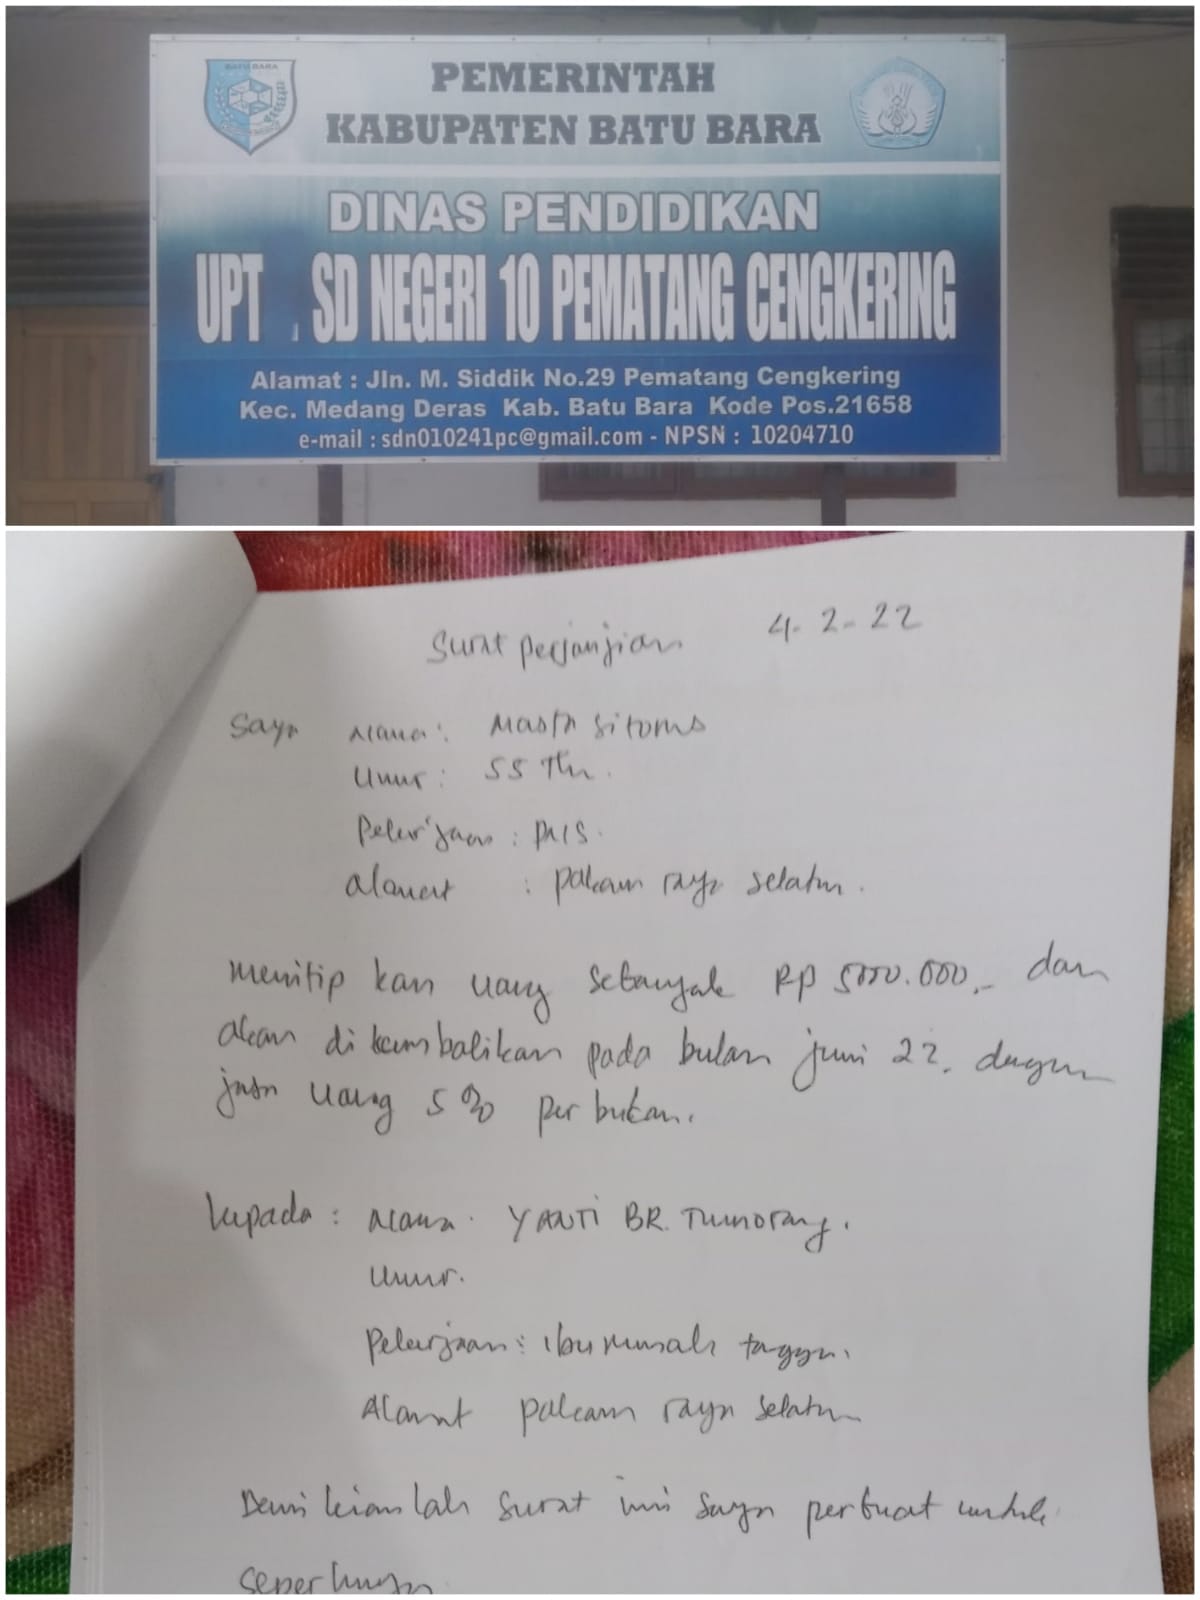 BATU BARA
PEMERINTAH
KABUPATEN BATU BARA
DINAS PENDIDIKAN
UPT . SD NEGERI 10 PEMATANG CENGKERING
Alamat : Jln. M. Siddik No.29 Pematang Cengkering
Kec. Medang Deras Kab. Batu Bara Kode Pos.21658
e-mail : sdn010241pc@gmail.com - NPSN : 10204710
Surat perjanjian 4-2-22
Saya Nama: Masta Sitorus
Umur: 55 Thn.
Pekerjaan : PNS.
Alamat : pakam raya selatan.
menitip kan uang sebanyak Rp 5000.000,- dan
akan di kembalikan pada bulan juni 22. dengan
jasa uang 5% per bulan.
kepada : Nama. YANTI BR. Turnorang.
Umur.
Pekerjaan: ibu rumah tangga.
Alamat pakam raya selatan
Demi kian lah surat ini saya perbuat untuk
seperlunya